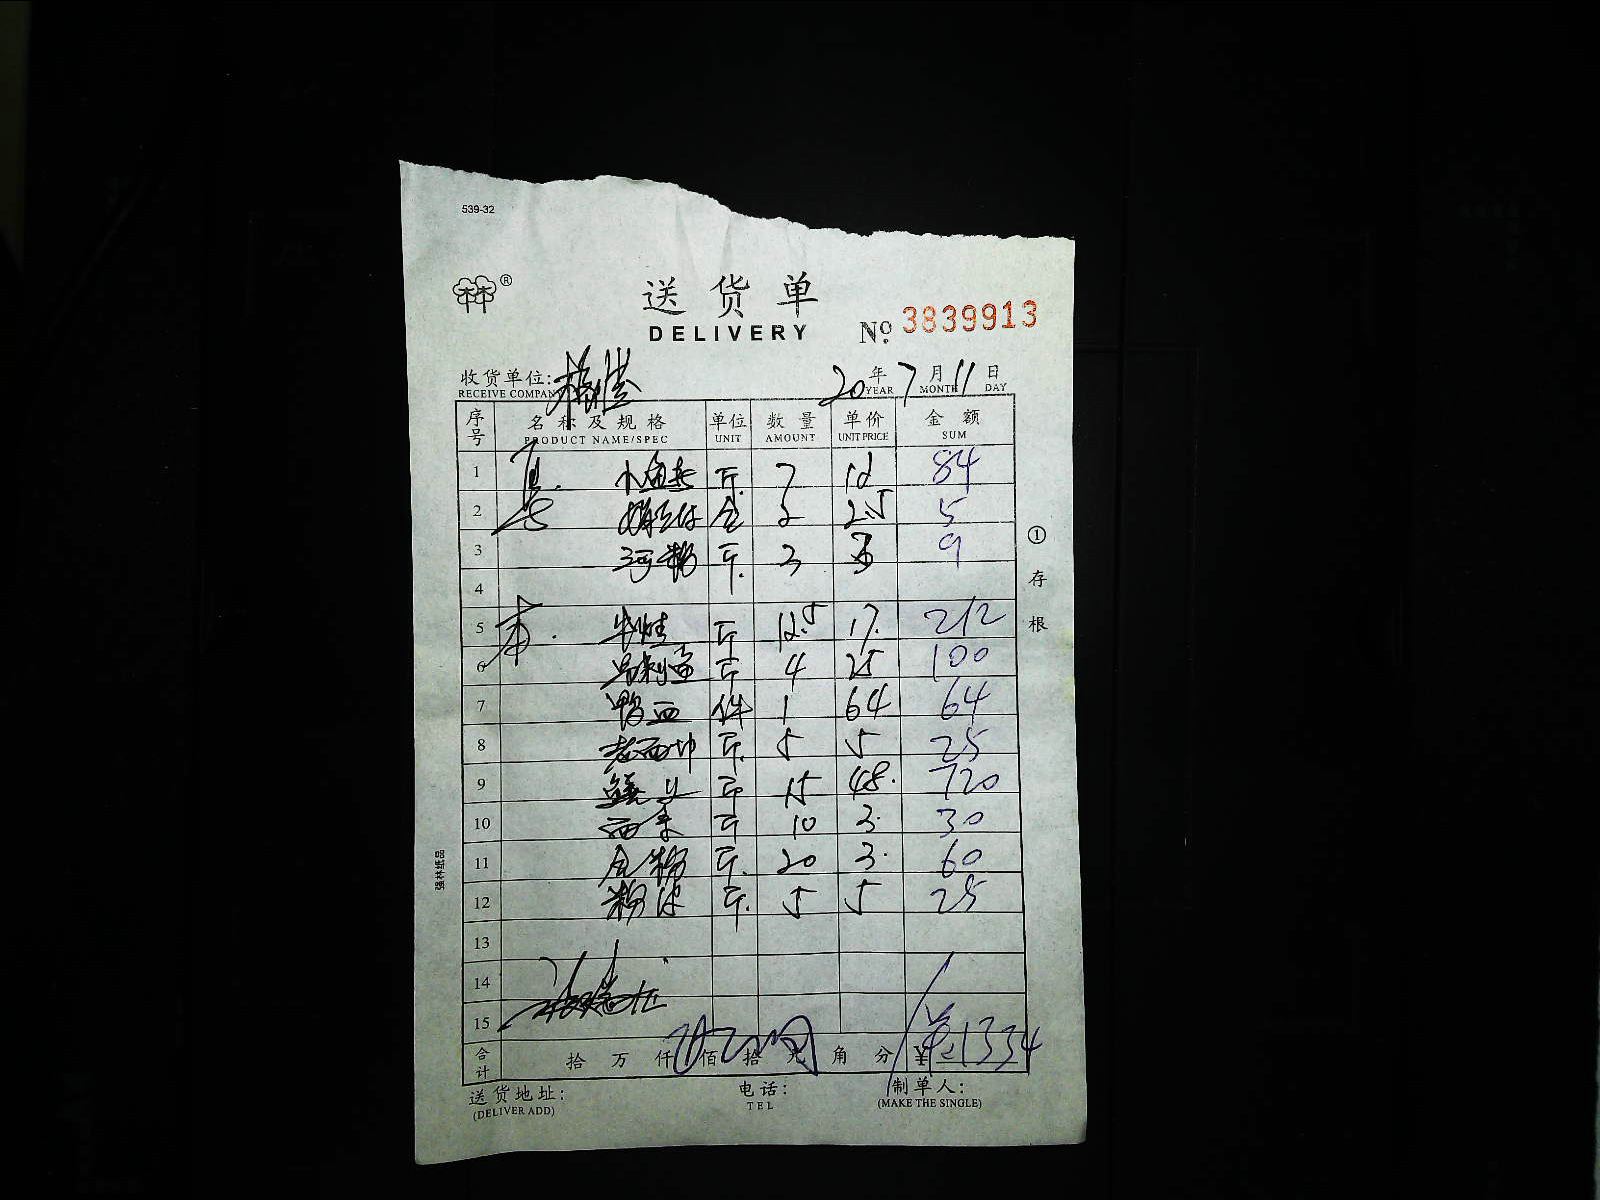 539-32
林 ®
送货单
DELIVERY
№ 3839913
收货单位:
RECEIVE COMPANY
20 年 7 月 11 日
YEAR MONTH DAY
序号 名称及规格 单位 数量 单价 金额
PRODUCT NAME/SPEC UNIT AMOUNT UNIT PRICE SUM
1 斤 7 12 84
2 2 2.5 5
3 河粉 斤 3 3 9
4
5 斤 12.5 17. 212
6 马利鱼 斤 4 25 100
7 鸭血 件 1 64 64
8 斤. 5 5 25
9 斤 15 48. 720
10 西米 斤 10 3. 30
11 斤. 20 3. 60
12 粉皮 斤. 5 5 25
13
14
15
合计 拾 万 仟 佰 拾 元 角 分 ¥1334
送货地址:
(DELIVER ADD)
电话:
TEL
制单人:
(MAKE THE SINGLE)
①存根
强林纸品